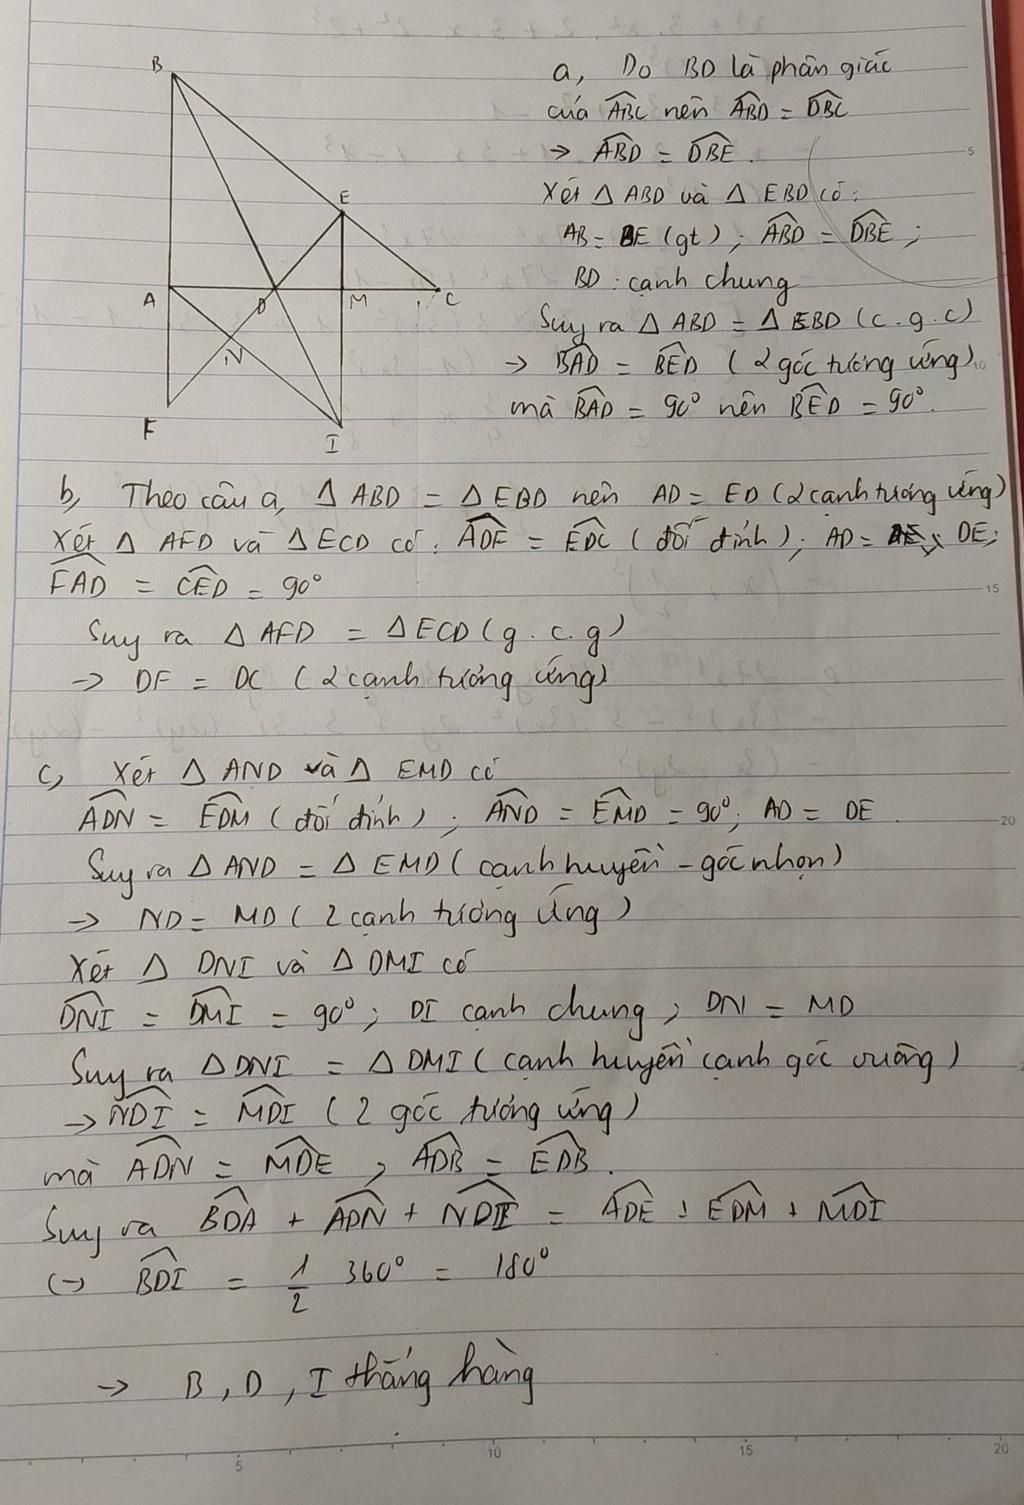 B
E
A
D
M
C
N
F
I
a, Do BD là phân giác
của ABC nên ABD = DBC
→ ABD = DBE.
Xét Δ ABD và Δ EBD có:
AB = BE (gt) ; ABD = DBE ;
BD : cạnh chung
Suy ra Δ ABD = Δ EBD (c.g.c)
→ BAD = BED (2 góc tương ứng)
mà BAD = 90° nên BED = 90°.
b, Theo câu a, Δ ABD = Δ EBD nên AD = ED (2 cạnh tương ứng)
Xét Δ AFD và Δ ECD có : ADF = EDC (đối đỉnh) ; AD = DE;
FAD = CED = 90°
Suy ra Δ AFD = Δ ECD (g.c.g)
→ DF = DC (2 cạnh tương ứng)
c, Xét Δ AND và Δ EMD có
ADN = EDM (đối đỉnh) ; AND = EMD = 90°; AD = DE.
Suy ra Δ AND = Δ EMD (cạnh huyền - góc nhọn)
→ ND = MD (2 cạnh tương ứng)
Xét Δ DNI và Δ DMI có
DNI = DMI = 90° ; DI cạnh chung ; DN = MD
Suy ra Δ DNI = Δ DMI (cạnh huyền cạnh góc vuông)
→ NDI = MDI (2 góc tương ứng)
mà ADN = MDE , ADB = EDB.
Suy ra BDA + ADN + NDI = ADE + EDM + MDI
(→ BDI = 1/2 360° = 180°
→ B, D, I thẳng hàng
5
10
15
20
5
10
15
20